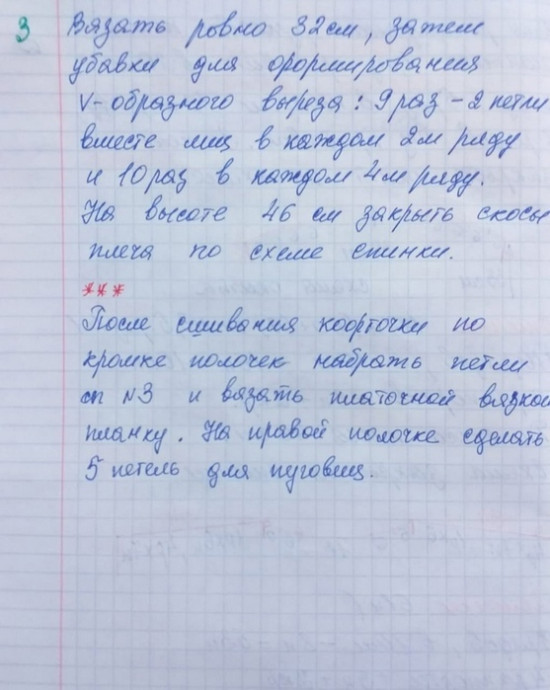 3
Вязать ровно 32см, затем
убавки для формирования
V-образного выреза: 9 раз - 2 петли
вместе лиц в каждом 2м ряду
и 10 раз в каждом 4м ряду.
На высоте 46 см закрыть скосы
плеча по схеме спинки.
***
После сшивания кофточки по
кромке полочек набрать петли
сп №3 и вязать платочной вязкой
планку. На правой полочке сделать
5 петель для пуговиц.